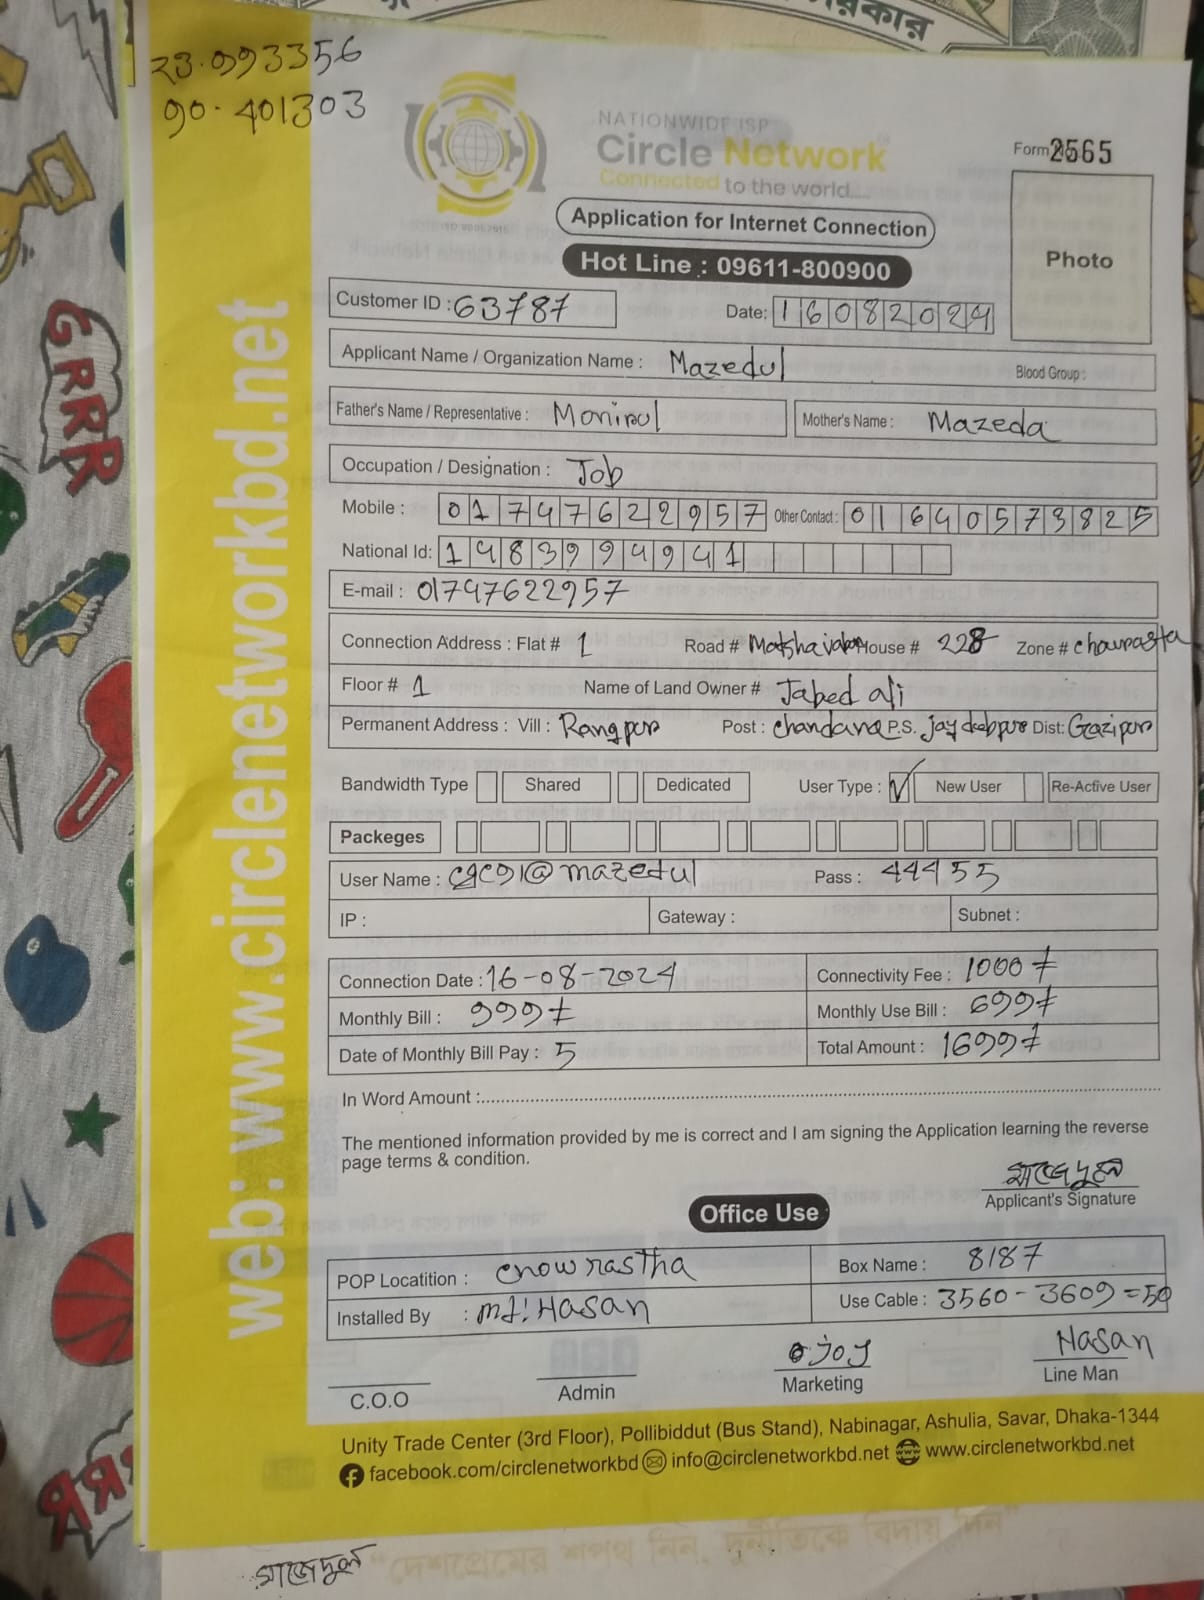 রকার
23.993356
90.401303
NATIONWIDE ISP
Circle Network
Connected to the world....
Form 2565
Application for Internet Connection
Photo
Hot Line : 09611-800900
Customer ID : 63787
Date: 16082024
Applicant Name / Organization Name : Mazedul
Blood Group :
Father's Name / Representative : Monirul
Mother's Name : Mazeda
Occupation / Designation : Job
Mobile : 01747622957 Other Contact : 01640573825
National Id: 1483994941
E-mail : 01747622957
Connection Address : Flat # 1 Road # House # 228 Zone # chowrasta
Floor # 1 Name of Land Owner # Jabed ali
Permanent Address : Vill : Rangpur Post : chandana P.S. joydebpur Dist: Gazipur
Bandwidth Type Shared Dedicated User Type : ✓ New User Re-Active User
Packeges
User Name : @mazedul Pass : 44455
IP : Gateway : Subnet :
Connection Date : 16-08-2024 Connectivity Fee : 1000/=
Monthly Bill : 999/= Monthly Use Bill : 699/=
Date of Monthly Bill Pay : 5 Total Amount : 1699/=
In Word Amount :
The mentioned information provided by me is correct and I am signing the Application learning the reverse
page terms & condition.
মাজেদুল
Applicant's Signature
Office Use
POP Locatition : chowrastha Box Name : 8187
Installed By : Md: Hasan Use Cable : 3560 - 3609 = 50
ojoy Hasan
C.O.O Admin Marketing Line Man
Unity Trade Center (3rd Floor), Pollibiddut (Bus Stand), Nabinagar, Ashulia, Savar, Dhaka-1344
facebook.com/circlenetworkbd info@circlenetworkbd.net www.circlenetworkbd.net
web: www.circlenetworkbd.net
মাজেদুল
"দেশপ্রেমের শপথ নিন, দুর্নীতিকে বিদায় দিন"
GRRR